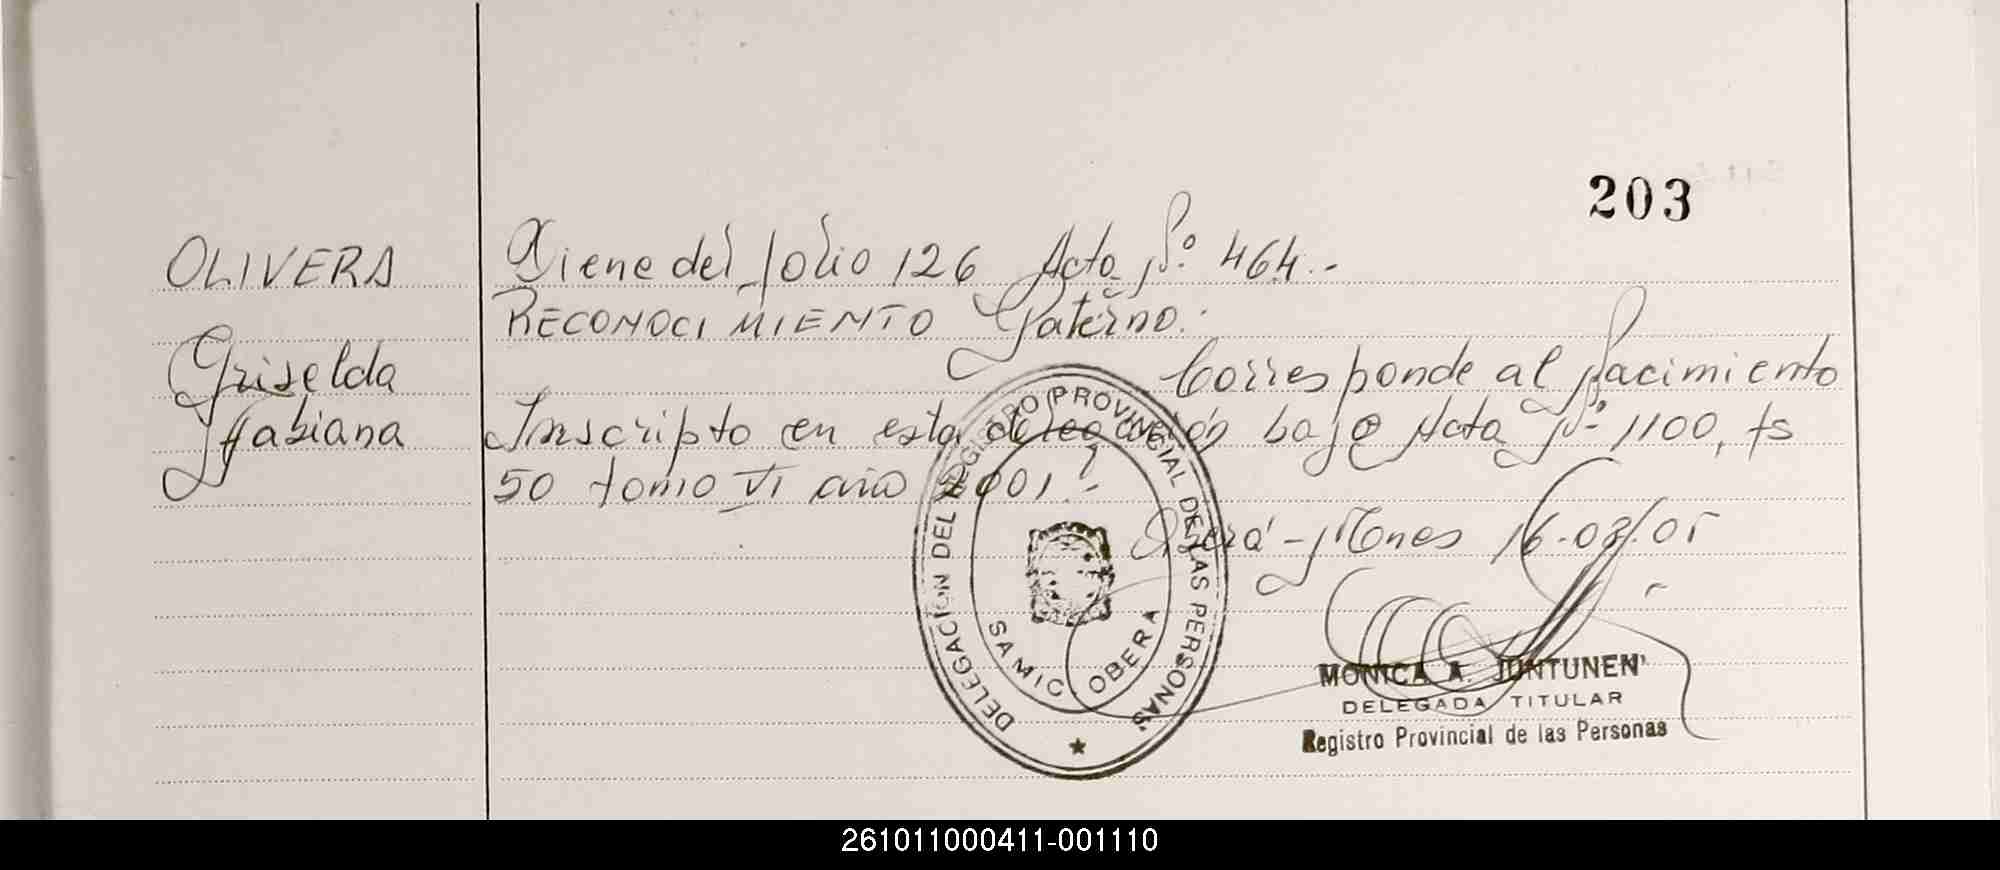 203
OLIVERA
Griselda
Fabiana
Viene del folio 126 Acta Nº 464.-
RECONOCIMIENTO Paterno.-
Corresponde al Nacimiento
Inscripto en esta delegación bajo Acta Nº 1100, fs
50 tomo VI año 2001.-
Oberá - Mnes 16-03-05
DELEGACION DEL REGISTRO PROVINCIAL DE LAS PERSONAS
SAMIC OBERA
MONICA A. JUNTUNEN
DELEGADA TITULAR
Registro Provincial de las Personas
261011000411-001110